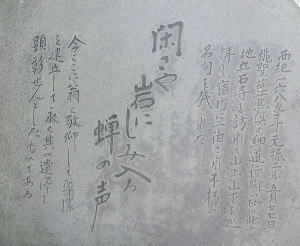 西紀一六八九年元禄二年五月廿七日
俳聖芭蕉奥の細道行脚の砌此の
地立石寺を訪れ山上山下を巡
拝し宿坊に泊される不朽の
名句を残された
閑さや
岩に
しみ入る
蝉の声
今ここに翁を敬仰して尊像
を建立して永く其の遺澤を
顕彰せんとしたものである